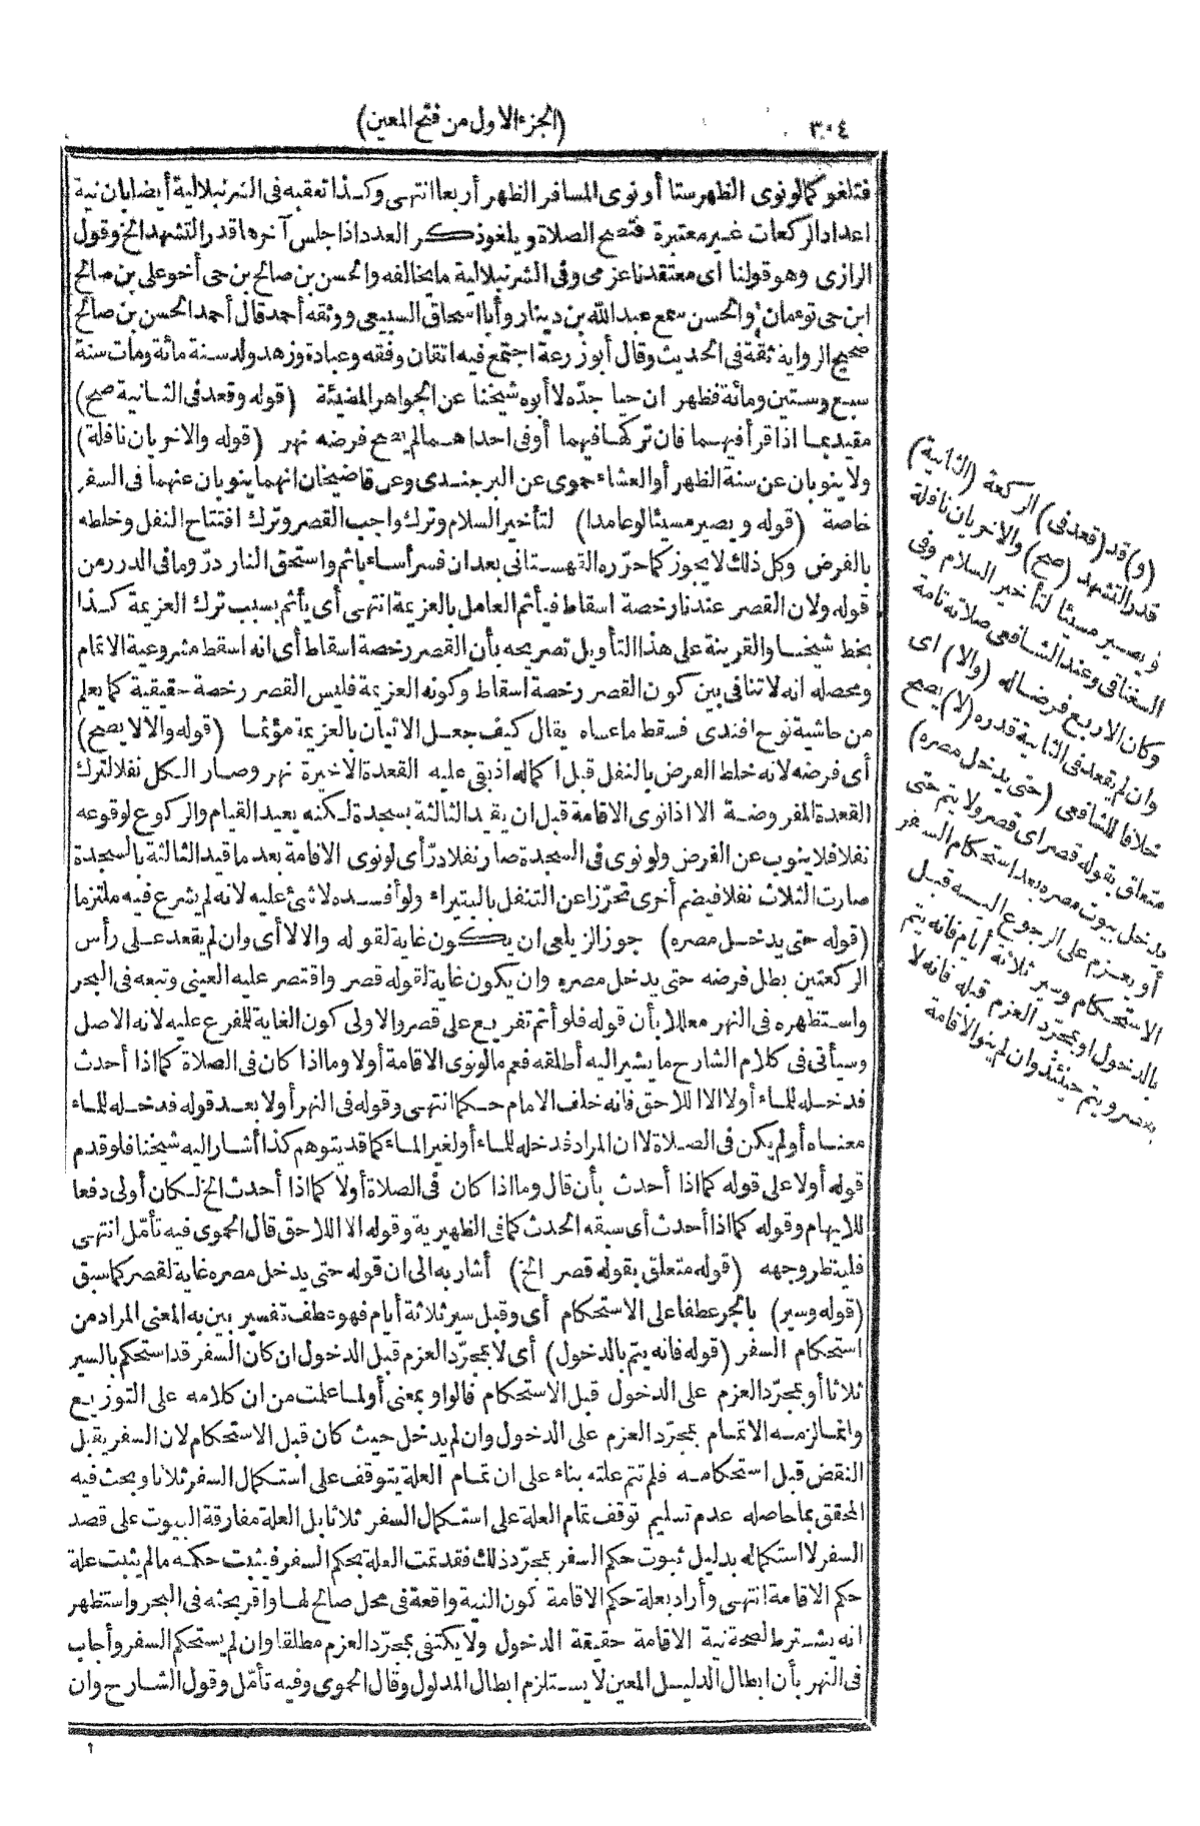 ٣٠٤
(الجزء الاول من فتح المعين)
فتلغو كما لو نوى الظهر ستا أو نوى المسافر الظهر أربعا انتهى وكذا تعقبه فى الشرنبلالية أيضا بان نية
اعداد الركعات غير معتبرة فتصح الصلاة ويلغو ذكر العدد اذا جلس آخرها قدر التشهد الخ وقول
الرازى وهو قولنا اى معتقدنا عزمى وفى الشرنبلالية ما يخالفه والحسن بن صالح بن حى أخو على بن صالح
ابن حى توءمان والحسن سمع عبد الله بن دينار وأبا اسحاق السبيعى ووثقه أحمد قال أحمد الحسن بن صالح
صحيح الرواية ثقة فى الحديث وقال أبو زرعة اجتمع فيه اتقان وفقه وعبادة وزهد ولد سنة مائة ومات سنة
سبع وستين ومائة فظهر ان حيا جدّه لا أبوه شيخنا عن الجواهر المضيئة (قوله وقعد فى الثانية صح)
مقيد بما اذا قرأ فيهما فان تركها فيهما أو فى احداهما لم يصح فرضه نهر (قوله والاخريان نافلة)
ولا ينوبان عن سنة الظهر أو العشاء حموى عن البرجندى وعن قاضيخان انهما ينوبان عنهما فى السفر
خاصة (قوله ويصير مسيئا لو عامدا) لتأخير السلام وترك واجب القصر وترك افتتاح النفل وخلطه
بالفرض وكل ذلك لا يجوز كما حرّره القهستانى بعد ان فسر أساء باثم واستحق النار درّ وما فى الدرر من
قوله ولان القصر عندنا رخصة اسقاط فيأثم العامل بالعزيمة انتهى أى يأثم بسبب ترك العزيمة كذا
بخط شيخنا والقرينة على هذا التأويل تصريحه بأن القصر رخصة اسقاط أى انه اسقط مشروعية الاتمام
ومحصله انه لا تنافى بين كون القصر رخصة اسقاط وكونه العزيمة فليس القصر رخصة حقيقية كما يعلم
من حاشية نوح افندى فسقط ما عساه يقال كيف جعل الاتيان بالعزيمة مؤثما (قوله والا لا يصح)
أى فرضه لانه خلط الفرض بالنفل قبل اكماله اذ بقى عليه القعدة الاخيرة نهر وصار الكل نفلا لترك
القعدة المفروضة الا اذا نوى الاقامة قبل ان يقيد الثالثة بسجدة لكنه يعيد القيام والركوع لوقوعه
نفلا فلا ينوب عن الفرض ولو نوى فى السجدة صار نفلا درّ أى لو نوى الاقامة بعد ما قيد الثالثة بالسجدة
صارت الثلاث نفلا فيضم أخرى تحرّزا عن التنفل بالبتيراء ولو أفسده لا شئ عليه لانه لم يشرع فيه ملتزما
(قوله حتى يدخل مصره) جوز الزيلعى ان يكون غاية لقوله والا لا أى وان لم يقعد على رأس
الركعتين بطل فرضه حتى يدخل مصره وان يكون غاية لقوله قصر واقتصر عليه العينى وتبعه فى البحر
واستظهره فى النهر معللا بأن قوله فلو أتم تفريع على قصر والاولى كون الغاية للمفرع عليه لانه الاصل
وسيأتى فى كلام الشارح ما يشير اليه أطلقه فعم ما لو نوى الاقامة أولا وما اذا كان فى الصلاة كما اذا أحدث
فدخله للماء أولا الا اللاحق فانه خلف الامام حكما انتهى وقوله فى النهر أولا بعد قوله فدخله للماء
معناه أولم يكن فى الصلاة لا ان المراد فدخله للماء أو لغير الماء كما قد يتوهم كذا أشار اليه شيخنا فلو قدم
قوله أولا على قوله كما اذا أحدث بأن قال وما اذا كان فى الصلاة أولا كما اذا أحدث الخ لكان أولى دفعا
للايهام وقوله كما اذا أحدث أى سبقه الحدث كما فى الظهيرية وقوله الا اللاحق قال الحموى فيه تأمّل انتهى
فلينظر وجهه (قوله متعلق بقوله قصر الخ) أشار به الى ان قوله حتى يدخل مصره غاية لقصر كما سبق
(قوله وسير) بالجر عطفا على الاستحكام أى وقبل سير ثلاثة أيام فهو عطف تفسير بين به المعنى المراد من
استحكام السفر (قوله فانه يتم بالدخول) أى لا بمجرّد العزم قبل الدخول ان كان السفر قد استحكم بالسير
ثلاثا أو بمجرّد العزم على الدخول قبل الاستحكام فالواو بمعنى أو لما علمت من ان كلامه على التوزيع
وانما لزمه الاتمام بمجرّد العزم على الدخول وان لم يدخل حيث كان قبل الاستحكام لان السفر يقبل
النقض قبل استحكامه فلم تتم علته بناء على ان تمام العلة يتوقف على استكمال السفر ثلاثا وبحث فيه
المحقق بما حاصله عدم تسليم توقف تمام العلة على استكمال السفر ثلاثا بل العلة مفارقة البيوت على قصد
السفر لا استكماله بدليل ثبوت حكم السفر بمجرّد ذلك فقد تمت العلة بحكم السفر فيثبت حكمه ما لم يثبت علة
حكم الاقامة انتهى وأراد بعلة حكم الاقامة كون النية واقعة فى محل صالح لها وأقر بحثه فى البحر واستظهر
انه يشترط لصحة نية الاقامة حقيقة الدخول ولا يكتفى بمجرّد العزم مطلقا وان لم يستحكم السفر وأجاب
فى النهر بأن ابطال الدليل المعين لا يستلزم ابطال المدلول وقال الحموى وفيه تأمّل وقول الشارح وان
(و) قد (قعد فى) الركعة (الثانية)
قدر التشهد (صح) والاخريان نافلة
ويصير مسيئا لتأخير السلام وفى
السغناقى وعند الشافعى صلاته تامة
وكان الاربع فرضا له (والا) اى
وان لم يقعد فى الثانية قدره (لا) يصح
خلافا للشافعى (حتى يدخل مصره)
متعلق بقوله قصر اى قصر ولا يتم حتى
يدخل بيوت مصره بعد استحكام السفر
أو يعزم على الرجوع اليه قبل
الاستحكام وسير ثلاثة أيام فانه يتم
بالدخول او بمجرّد العزم قبله فانه لا
يقصر ويتم حينئذ وان لم ينو الاقامة